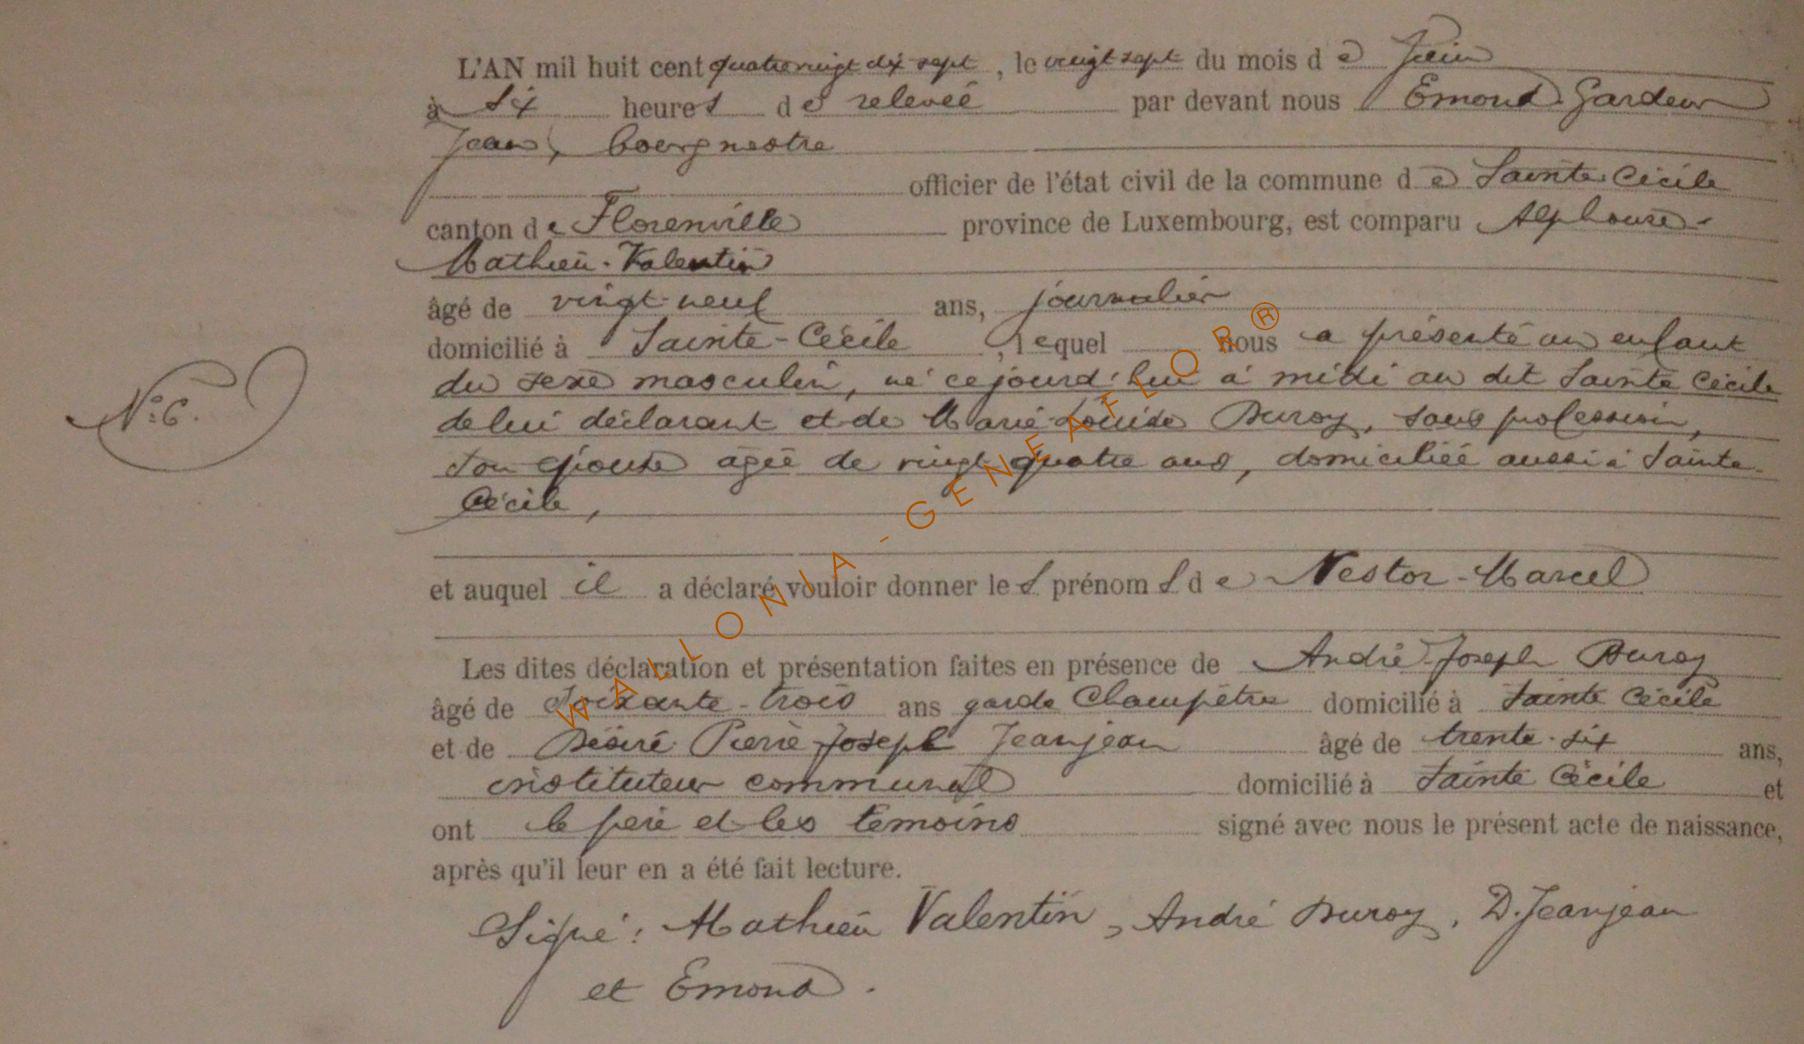 L'AN mil huit cent quatrevingt dix sept, le vingt sept du mois de Juin
à six heures de relevée par devant nous Emond Gardeur
Jean, bourgmestre
officier de l'état civil de la commune de Sainte Cécile
canton de Florenville province de Luxembourg, est comparu Alphonse-
Mathieu-Valentin
âgé de vingt-neuf ans, journalier
domicilié à Sainte-Cécile, lequel nous a présenté un enfant
du sexe masculin, né cejourd'hui à midi au dit Sainte Cécile
de lui déclarant et de Marie-Louise Duroy, sans profession,
son épouse agée de vingt-quatre ans, domiciliée aussi à Sainte-
Cécile,
N°: 6.
et auquel il a déclaré vouloir donner les prénoms de Nestor-Marcel
Les dites déclaration et présentation faites en présence de André-Joseph Duroy
âgé de soixante-trois ans garde Champêtre domicilié à Sainte Cécile
et de Désiré Pierre Joseph Jeanjean âgé de trente-six ans,
instituteur communal domicilié à Sainte Cécile et
ont le père et les témoins signé avec nous le présent acte de naissance,
après qu'il leur en a été fait lecture.
Signé: Mathieu Valentin, André Duroy, D. Jeanjean
et Emond.
WALLONIA-GENEAFLOR®